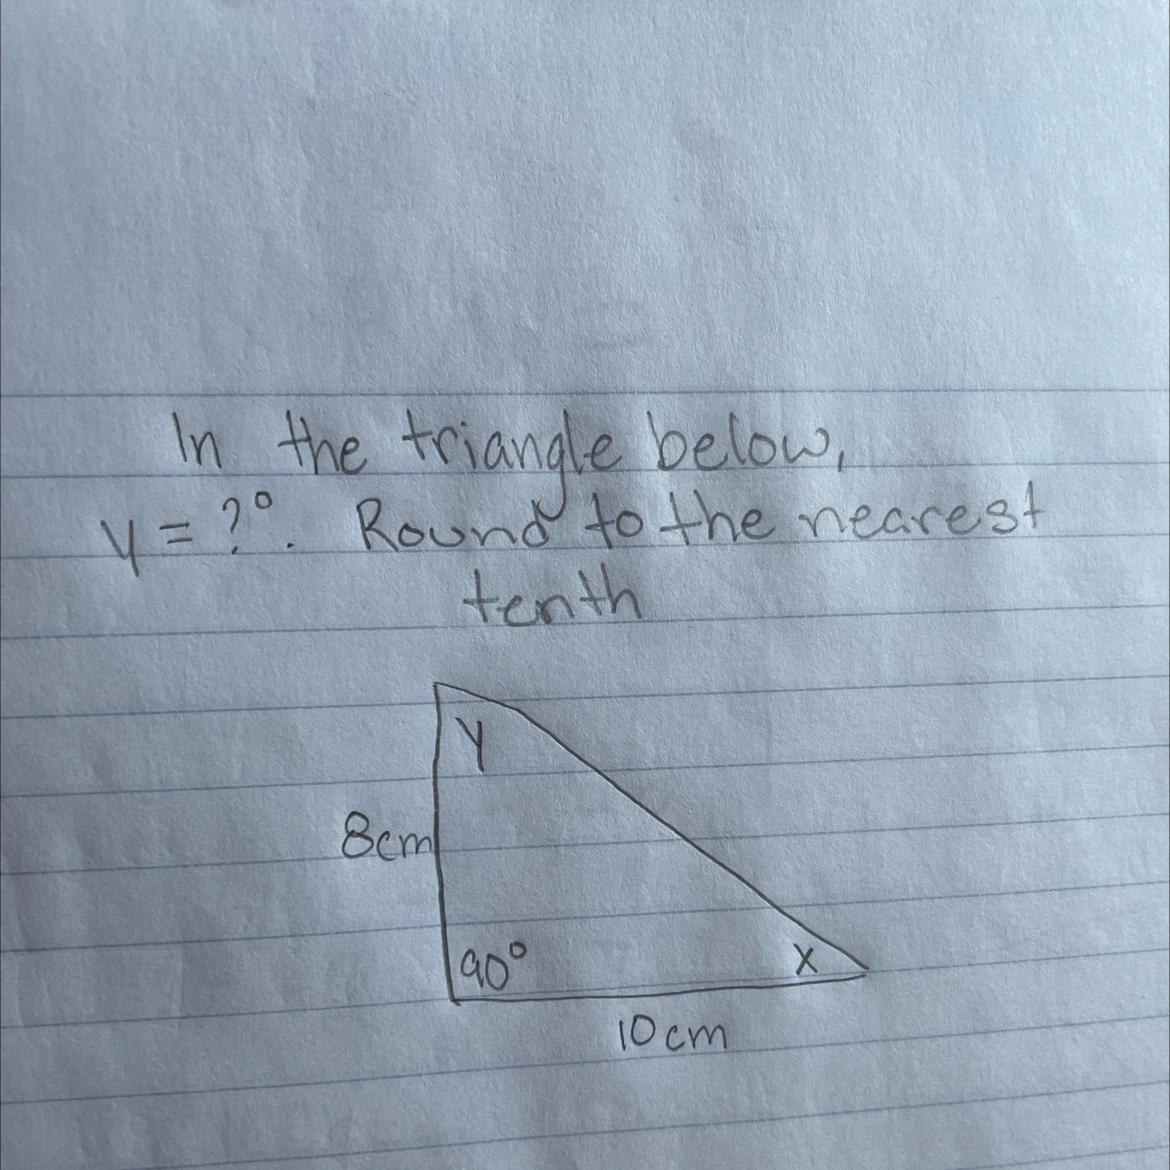 In the triangle below,
y = ?°. Round to the nearest
tenth
y
8cm
90°
x
10cm